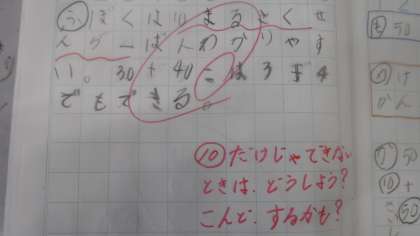 うぼくは10まるさくせ
んが一ばんわかりやす
い。30+40こは3+4
でもできる。
⑩だけじゃできない
ときは、どうしよう?
こんど、するかも?